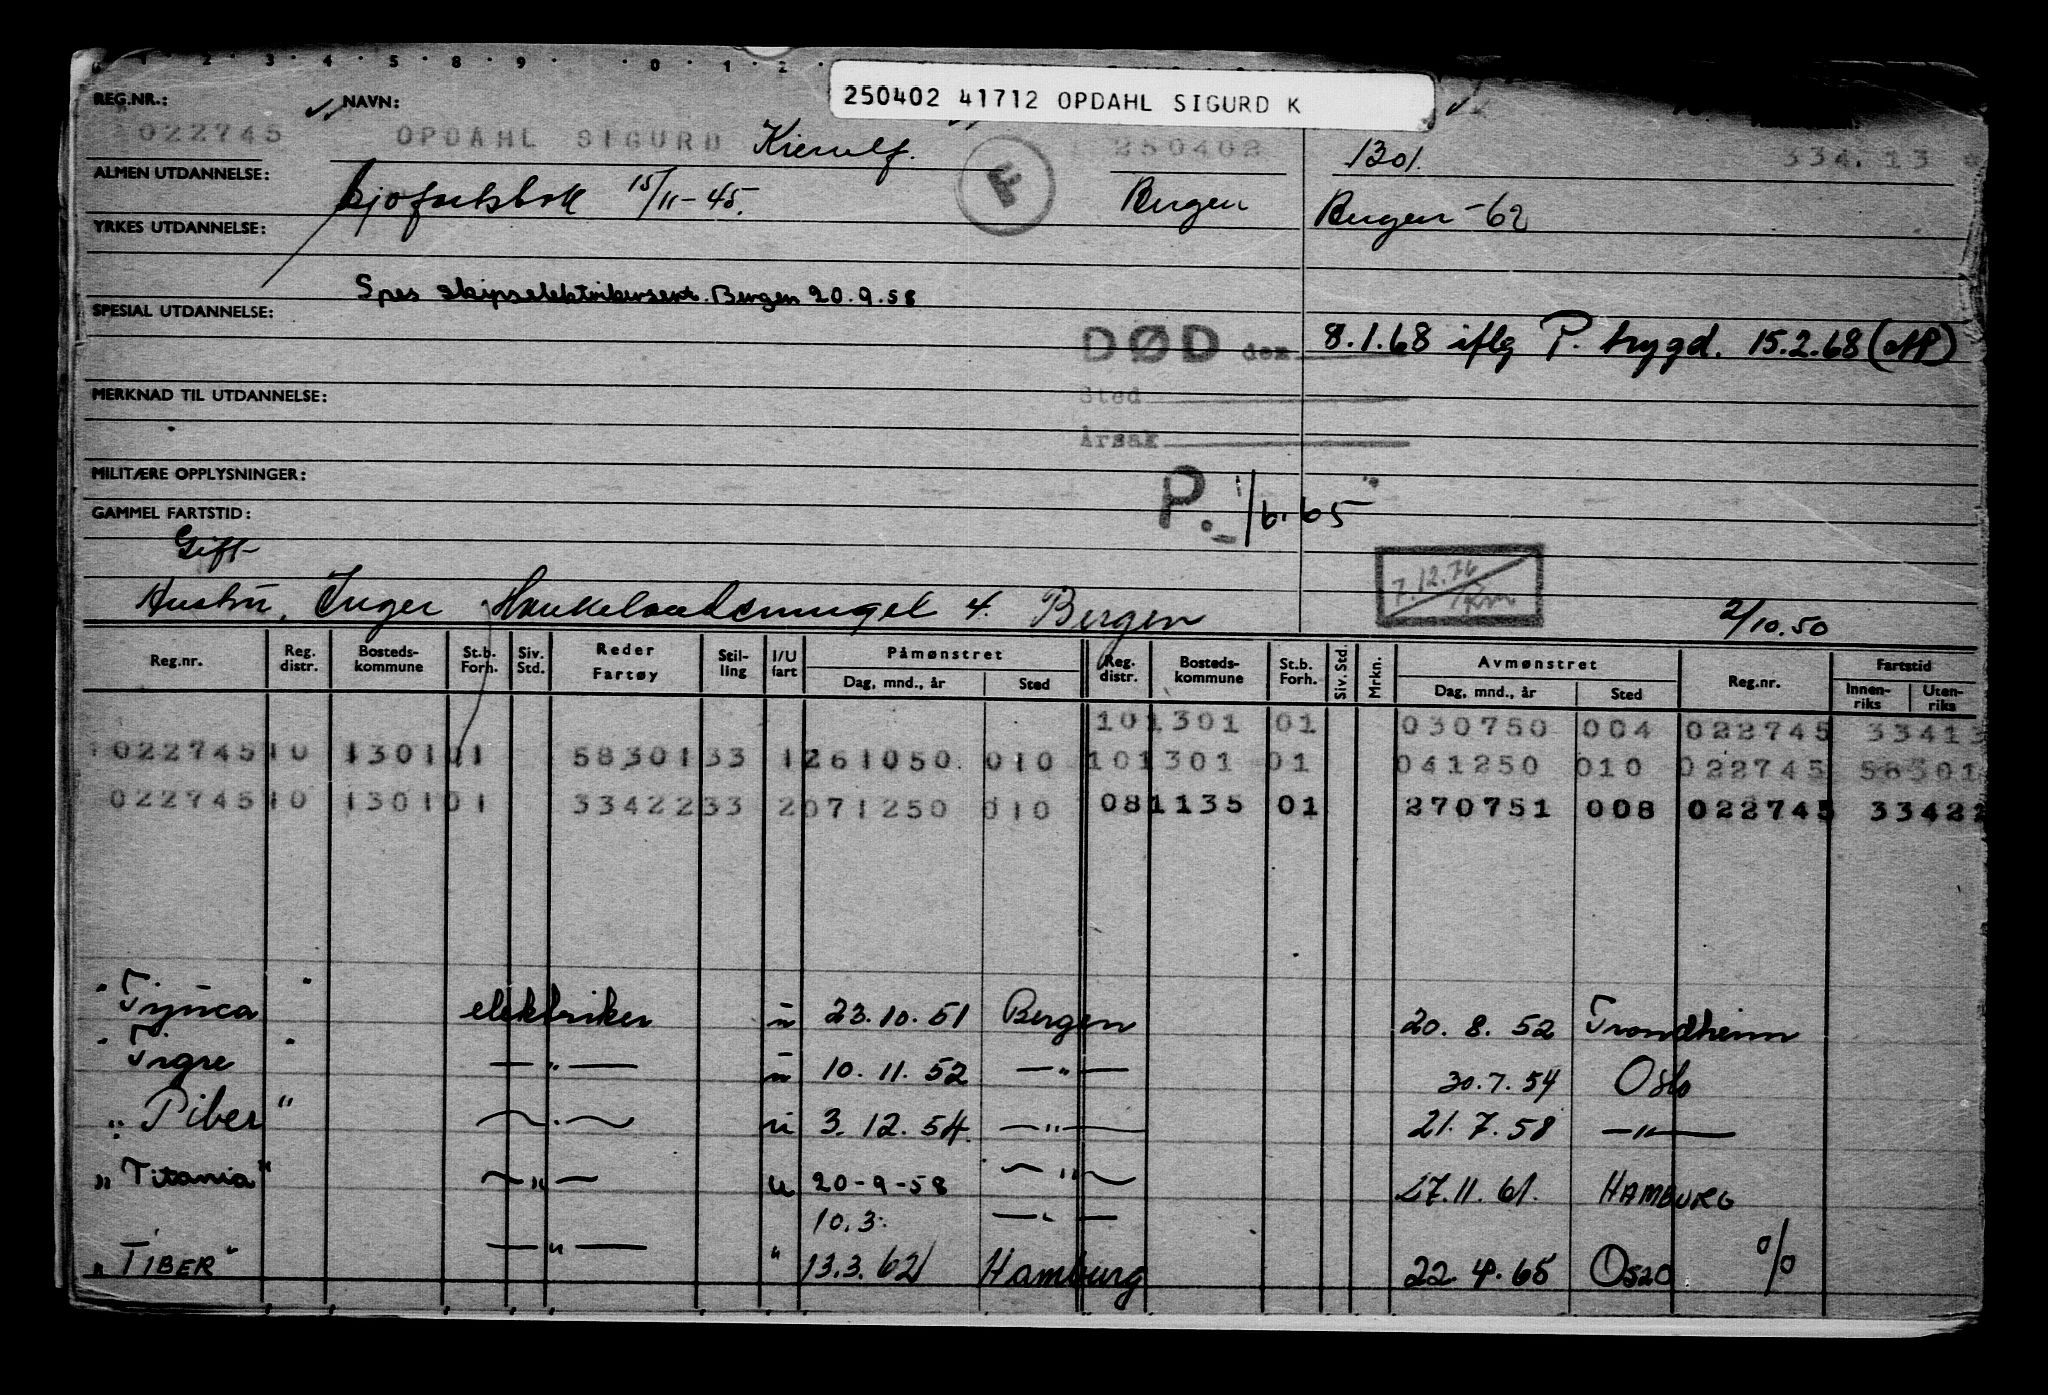 250402 41712 OPDAHL SIGURD K
REG.NR.: NAVN:
022745 OPDAHL SIGURD Kierulf. 250402 1301. 334.13
ALMEN UTDANNELSE: sjøfartsbok 15/11-45. F Bergen Bergen -62
YRKES UTDANNELSE:
Spes skipselektrikersert. Bergen 20.9.58
SPESIAL UTDANNELSE:
DØD den 8.1.68 iflg P. trygd. 15.2.68
MERKNAD TIL UTDANNELSE: Sted
Årsak
MILITÆRE OPPLYSNINGER:
P. 1/6.65
GAMMEL FARTSTID:
Gift
7.12.76
Hustru, Inger 4. Bergen 2/10.50
Reg.nr. Reg. distr. Bosteds- kommune St.b. Forh. Siv. Std. Reder Fartøy Stil- ling I/U fart Påmønstret Dag, mnd., år Sted Reg. distr. Bosteds- kommune St.b. Forh. Siv. Std. Mrkn. Avmønstret Dag, mnd., år Sted Reg.nr. Fartstid Innen- riks Uten- riks
101301 01 030750 004 022745 33413
022745 10 1301 01 58301 33 1 261050 010 101301 01 041250 010 022745 58301
022745 10 1301 01 33422 33 2 071250 010 081135 01 270751 008 022745 33422
"Tijuca" elektriker u 23.10.51 Bergen 20.8.52 Trondheim
"Tigre" — " — u 10.11.52 — " — 30.7.54 Oslo
"Piber" — " — u 3.12.54 — " — 21.7.58 — " —
"Titania" — " — u 20-9-58 — " — 27.11.61. HAMBURG
10.3. — " —
"TIBER" — " — " 13.3.62 Hamburg 22.4.65 OSLO %